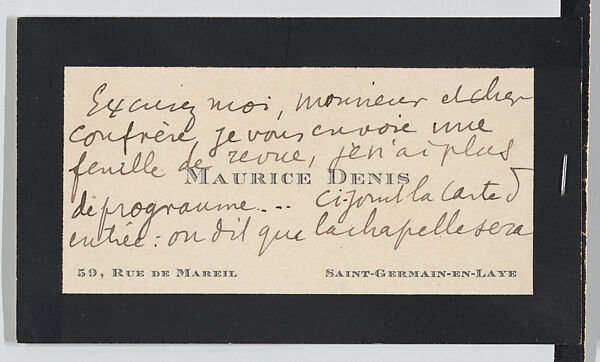 Excusez moi, monsieur et cher
confrère, je vous envoie une
feuille de revue, je n'ai plus
MAURICE DENIS
de programme... ci-joint la carte d
entrée : on dit que la chapelle sera
59, RUE DE MAREIL SAINT-GERMAIN-EN-LAYE